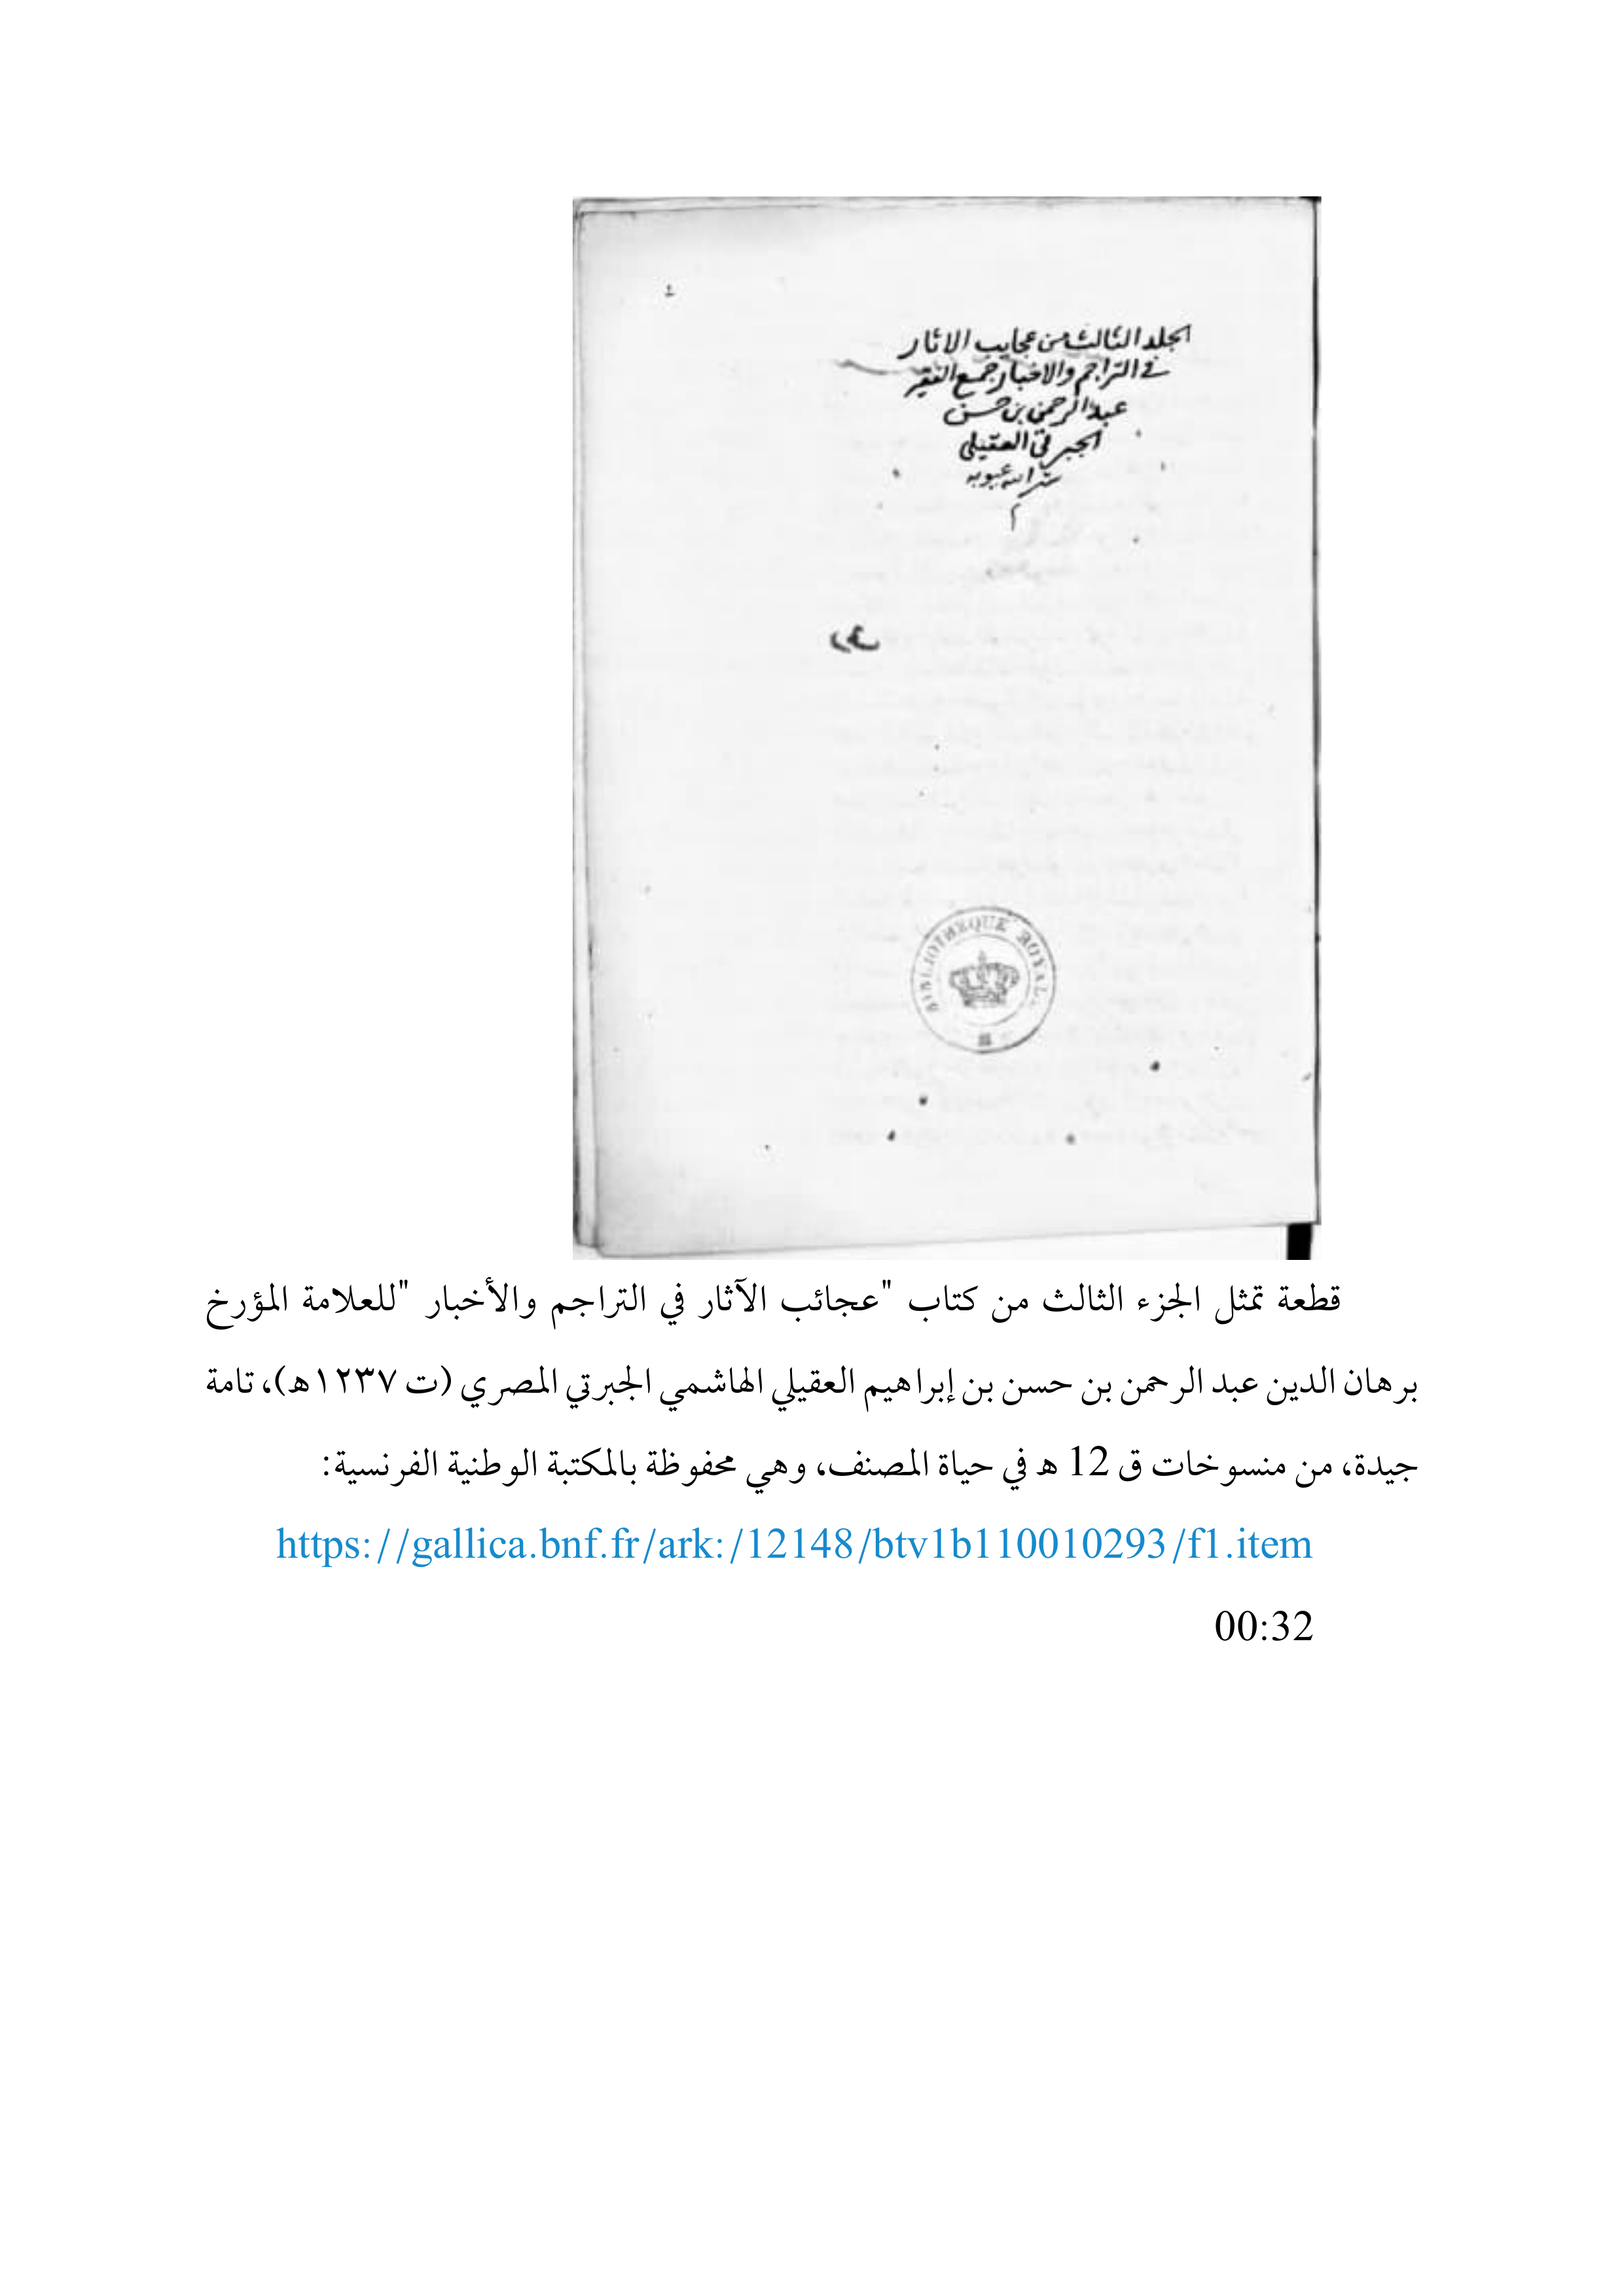 الجلد الثالث من عجايب الاثار
في التراجم والاخبار جمع الفقير
عبد الرحمن بن حسن
الجبرتي العقيلي
ستر الله عيوبه
م
BIBLIOTHEQUE ROYALE
قطعة تمثل الجزء الثالث من كتاب "عجائب الآثار في التراجم والأخبار "للعلامة المؤرخ
برهان الدين عبد الرحمن بن حسن بن إبراهيم العقيلي الهاشمي الجبرتي المصري (ت ١٢٣٧ه)، تامة
جيدة، من منسوخات ق 12 ه في حياة المصنف، وهي محفوظة بالمكتبة الوطنية الفرنسية:
https://gallica.bnf.fr/ark:/12148/btv1b110010293/f1.item
00:32